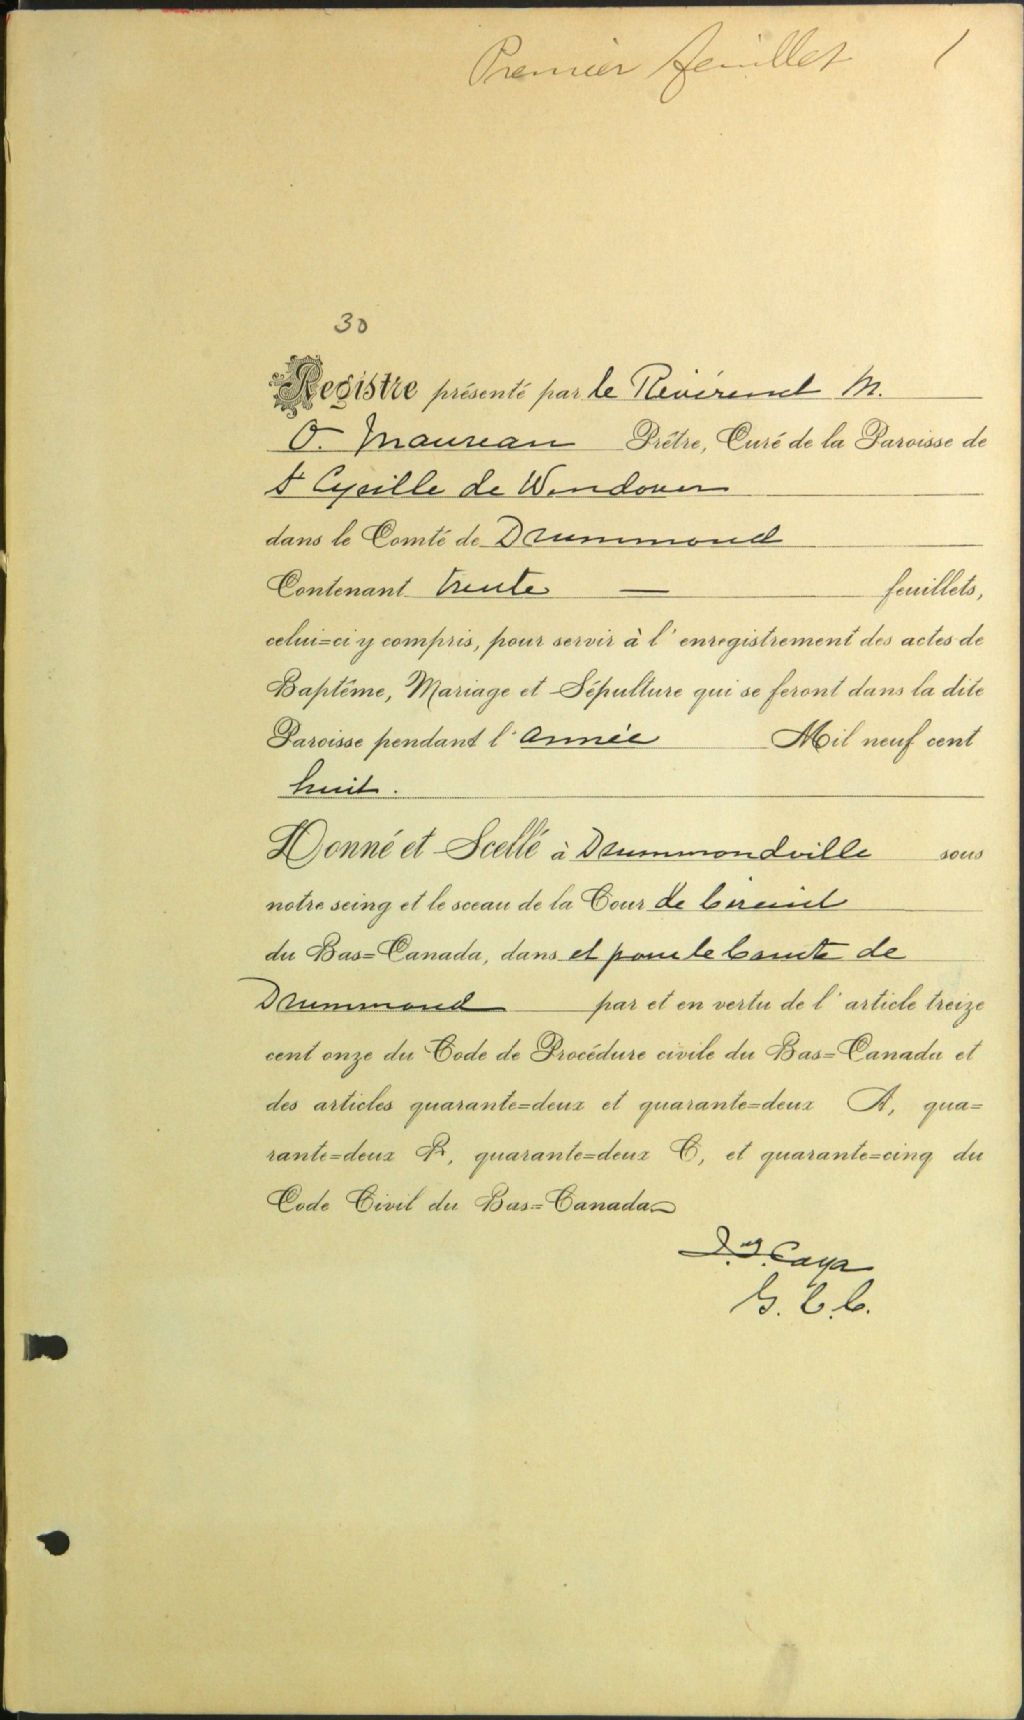 Premier feuillet 1
30
Registre présenté par le Révérend M.
O. Maurean Prêtre, Curé de la Paroisse de
St Cyrille de Wendover
dans le Comté de Drummond
Contenant trente — feuillets,
celui=ci y compris, pour servir à l'enregistrement des actes de
Baptême, Mariage et Sépulture qui se feront dans la dite
Paroisse pendant l'année Mil neuf cent
huit.
Donné et Scellé à Drummondville sous
notre seing et le sceau de la Cour de Circuit
du Bas=Canada, dans et pour le Comté de
Drummond par et en vertu de l'article treize
cent onze du Code de Procédure civile du Bas=Canada et
des articles quarante=deux et quarante=deux A, qua=
rante=deux B, quarante=deux C, et quarante=cinq du
Code Civil du Bas=Canada
Caya
G. C. C.